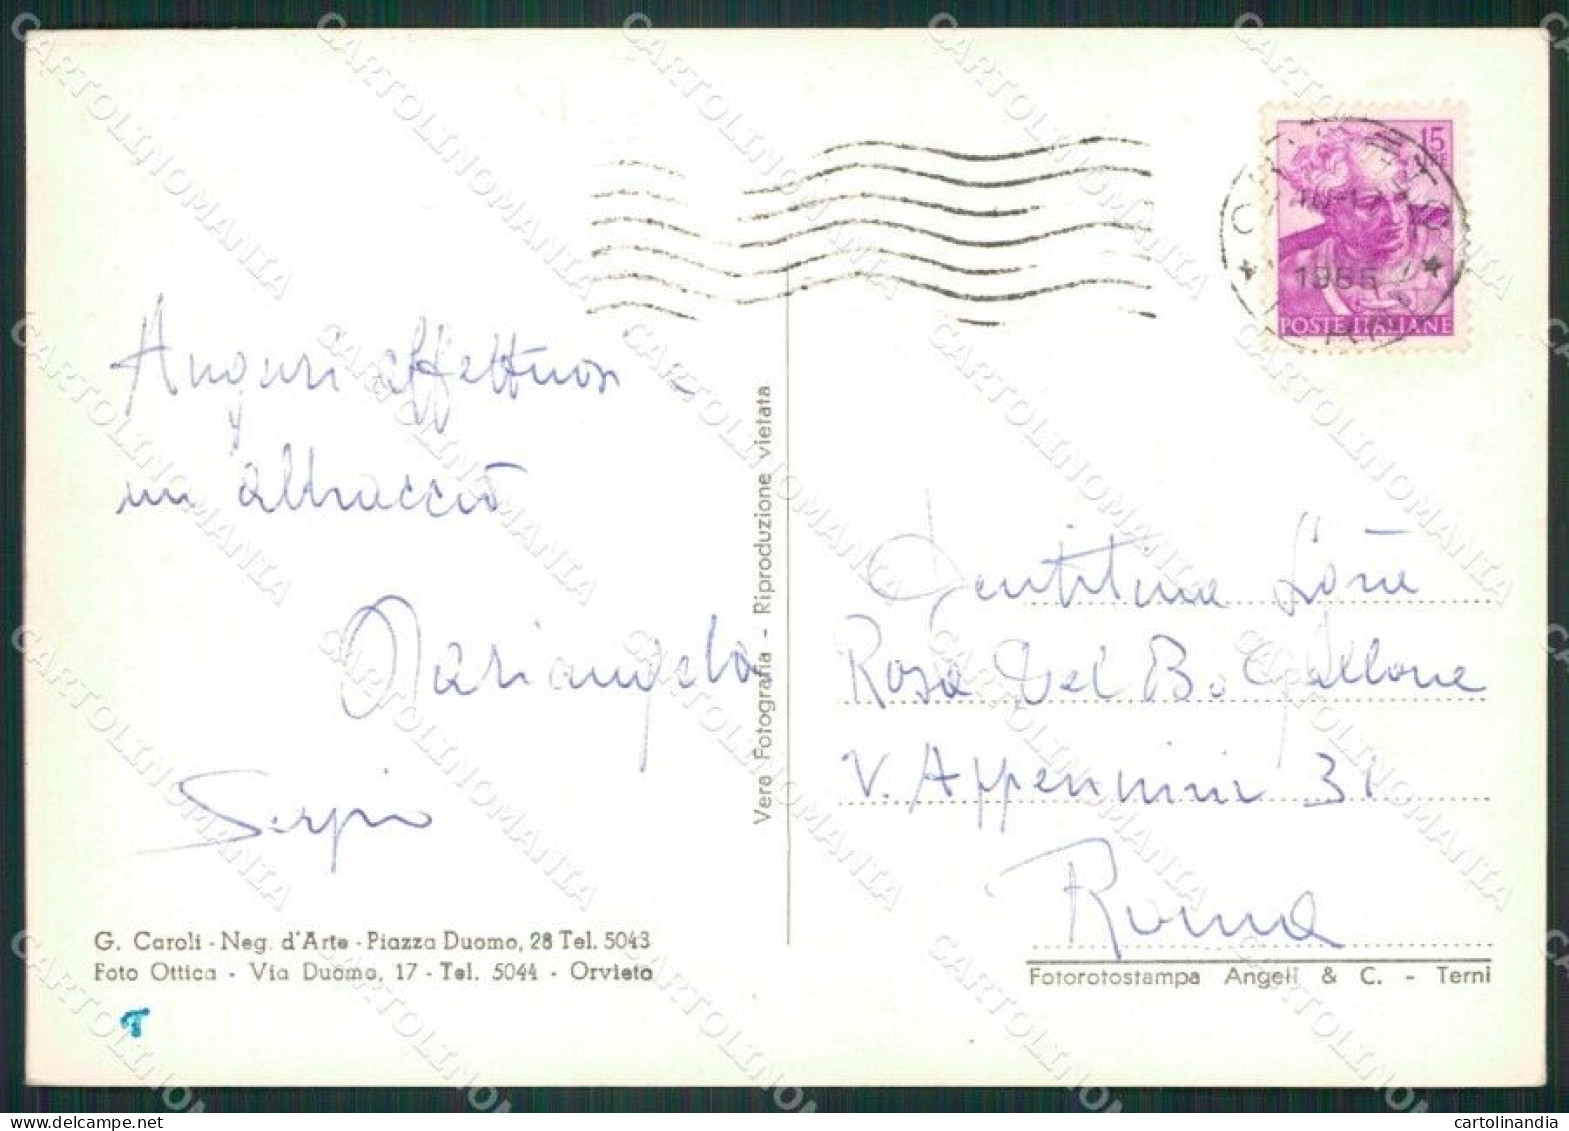 15
LIRE
1965
POSTE ITALIANE
Auguri affettuosi -
un abbraccio
Mariangela
Sergio
Vera Fotografia - Riproduzione vietata
Gentilina
Rosa Del B.
V. Appennini 31
Roma
G. Caroli - Neg. d'Arte - Piazza Duomo, 28 Tel. 5043
Foto Ottica - Via Duomo, 17 - Tel. 5044 - Orvieto
Fotorotostampa Angeli & C. - Terni
T
CARTOLINOMANIA
cartolinandia